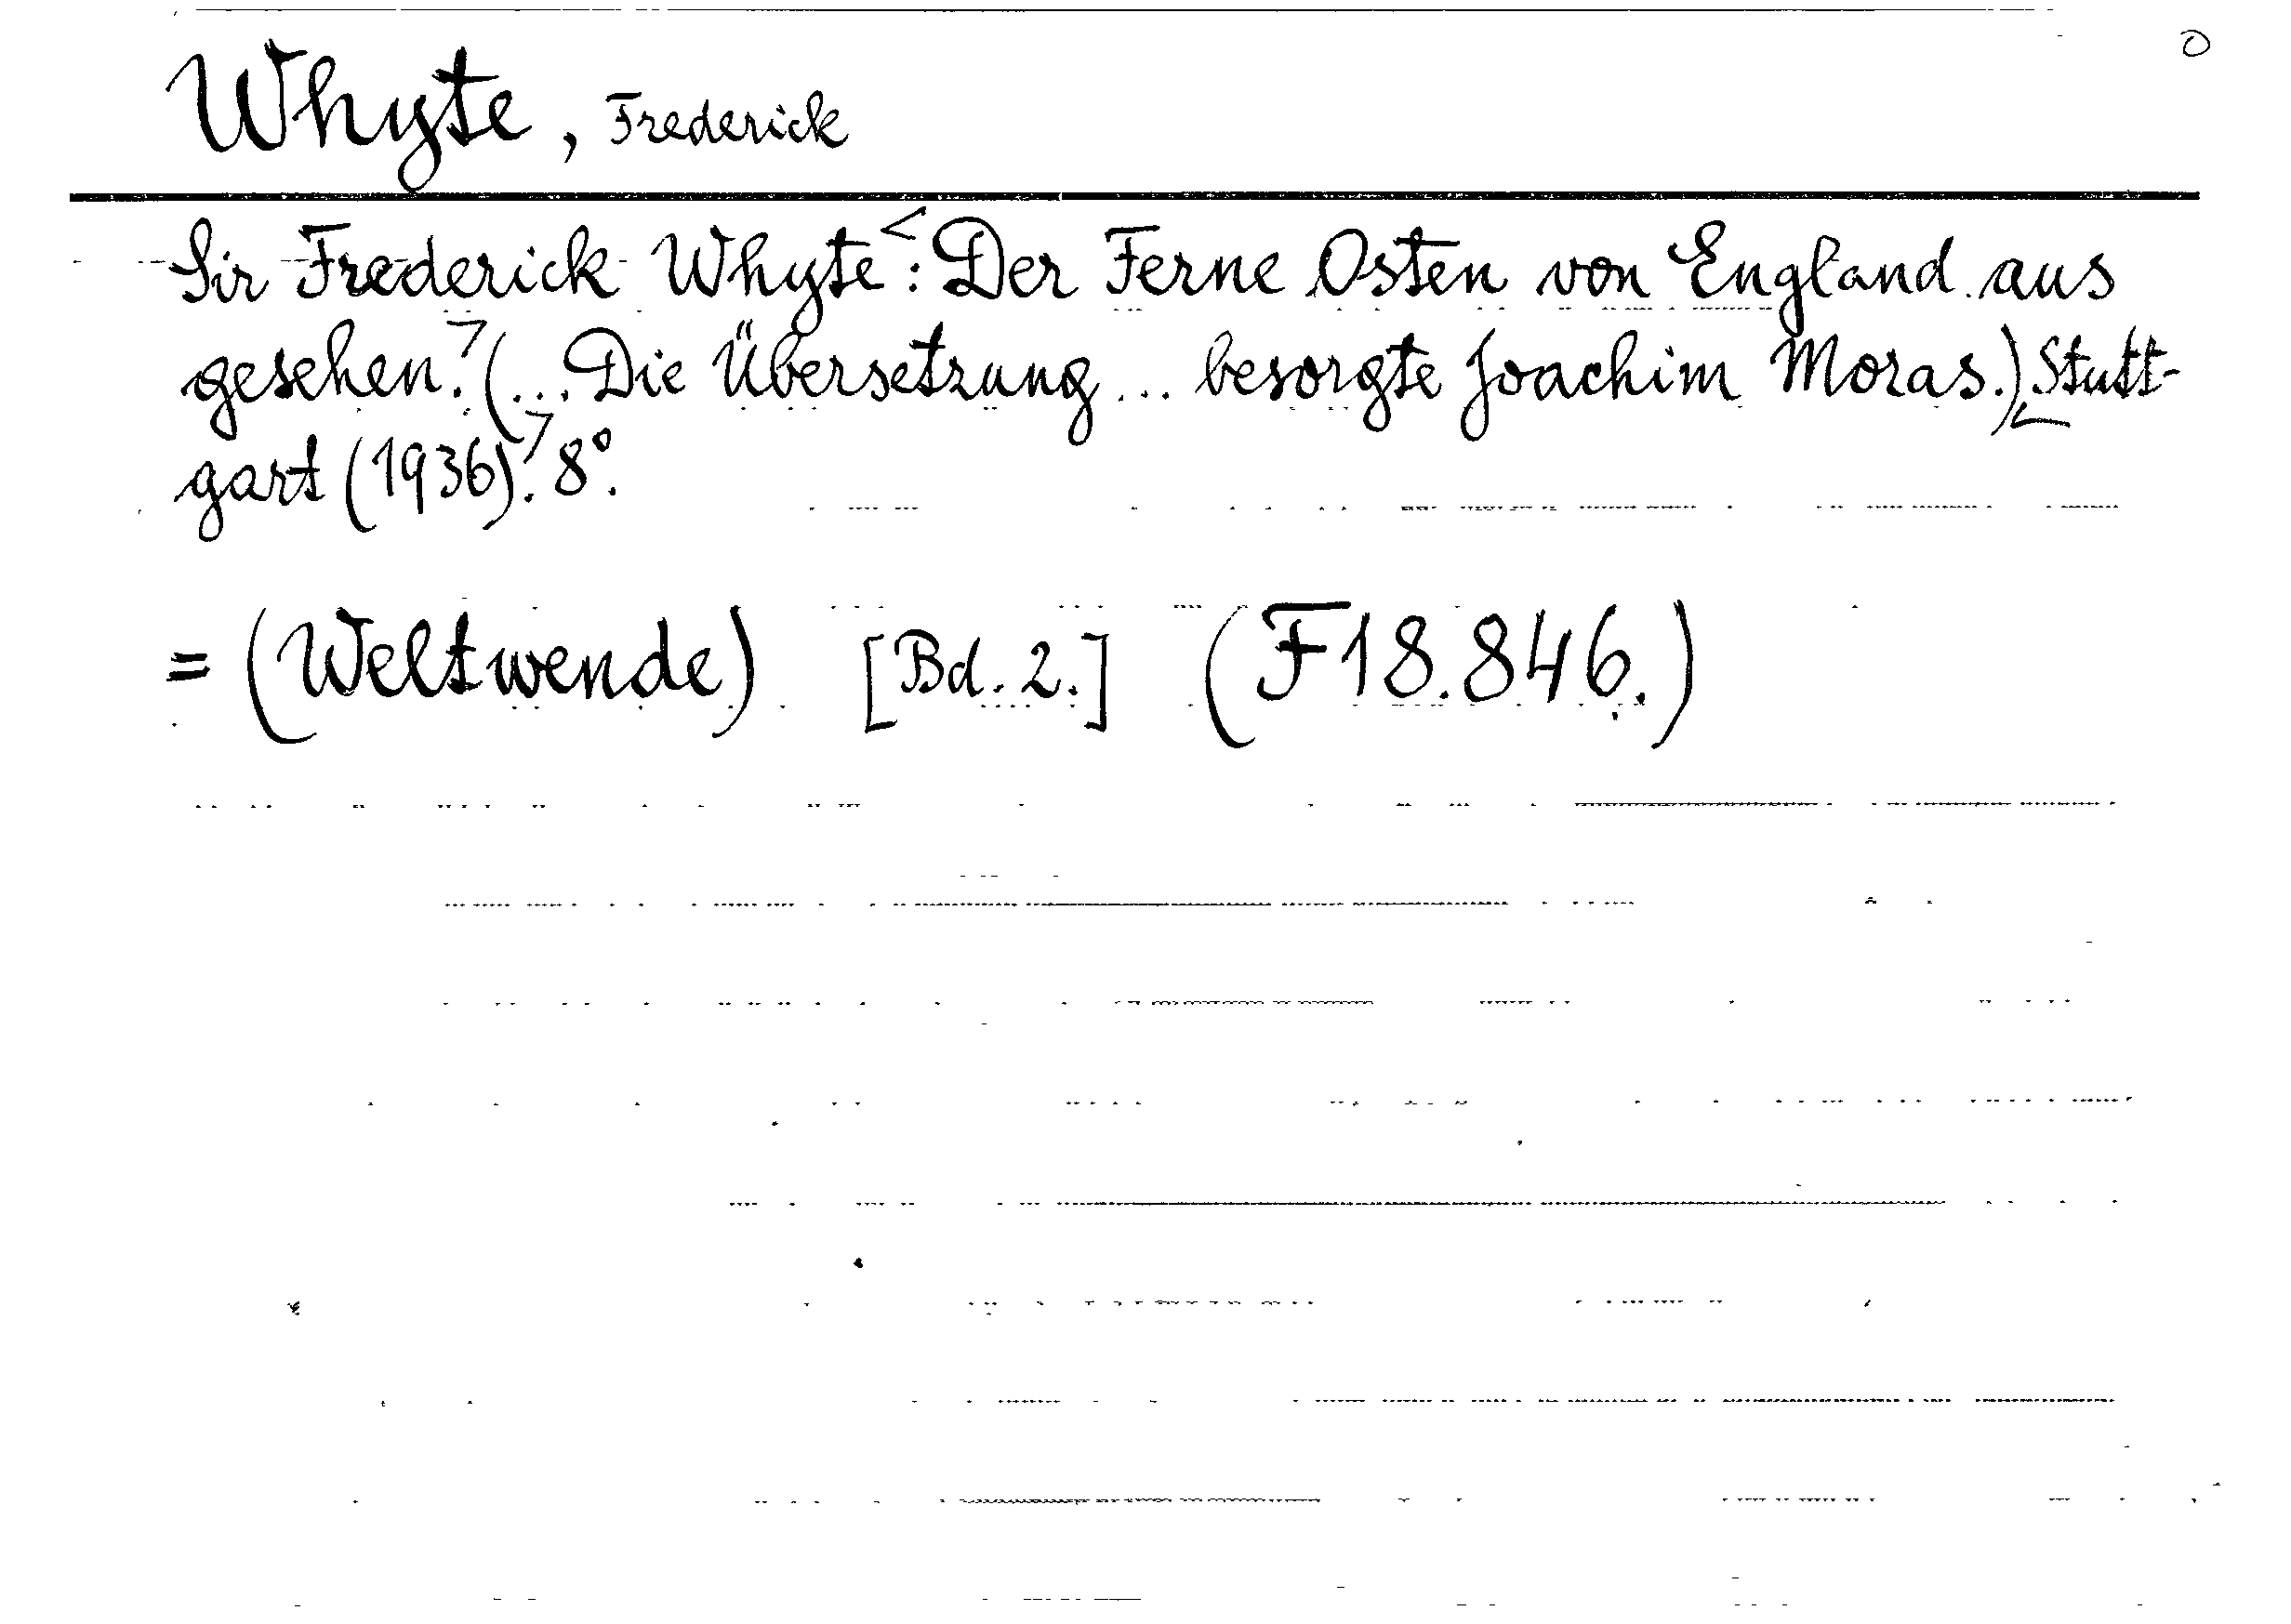 Whyte, Frederick
Sir Frederick Whyte<: Der Ferne Osten von England aus
gesehen.> (... Die Übersetzung ... besorgte Joachim Moras.) <Stutt-
gart (1936).> 8°.
= (Weltwende) [Bd. 2.] (F18.846.)